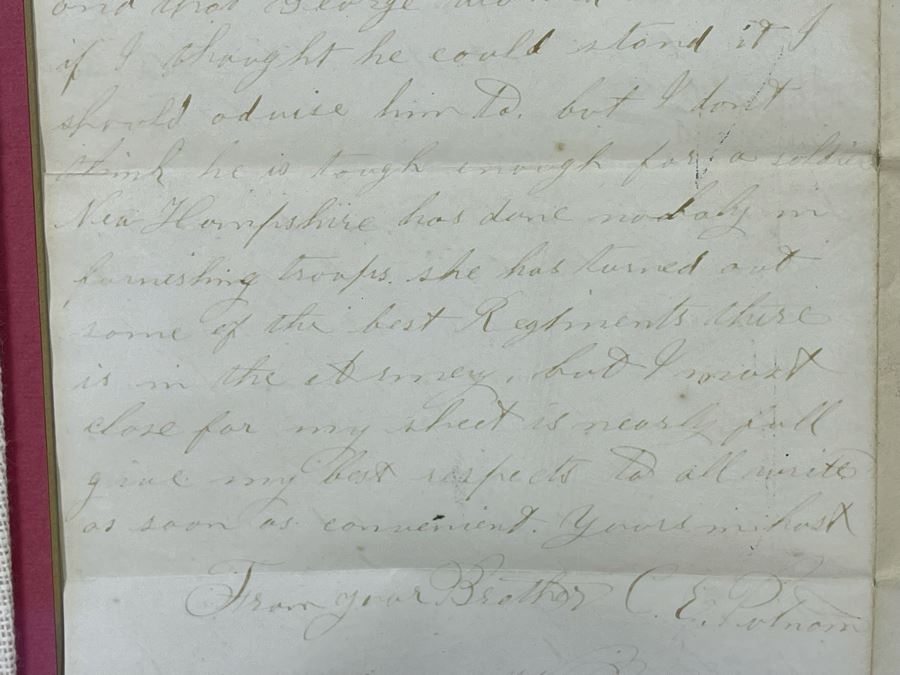 and that George
if I thought he could stand it I
should advise him to. but I dont
think he is tough enough for a soldier
New Hampshire has done nobaly in
furnishing troops. she has turned out
some of the best Regtments there
is in the Armey, but I must
close for my sheet is nearly full
give my best respects to all write
as soon as convenient. Yours in hast
From your Brother C. E. Putnam